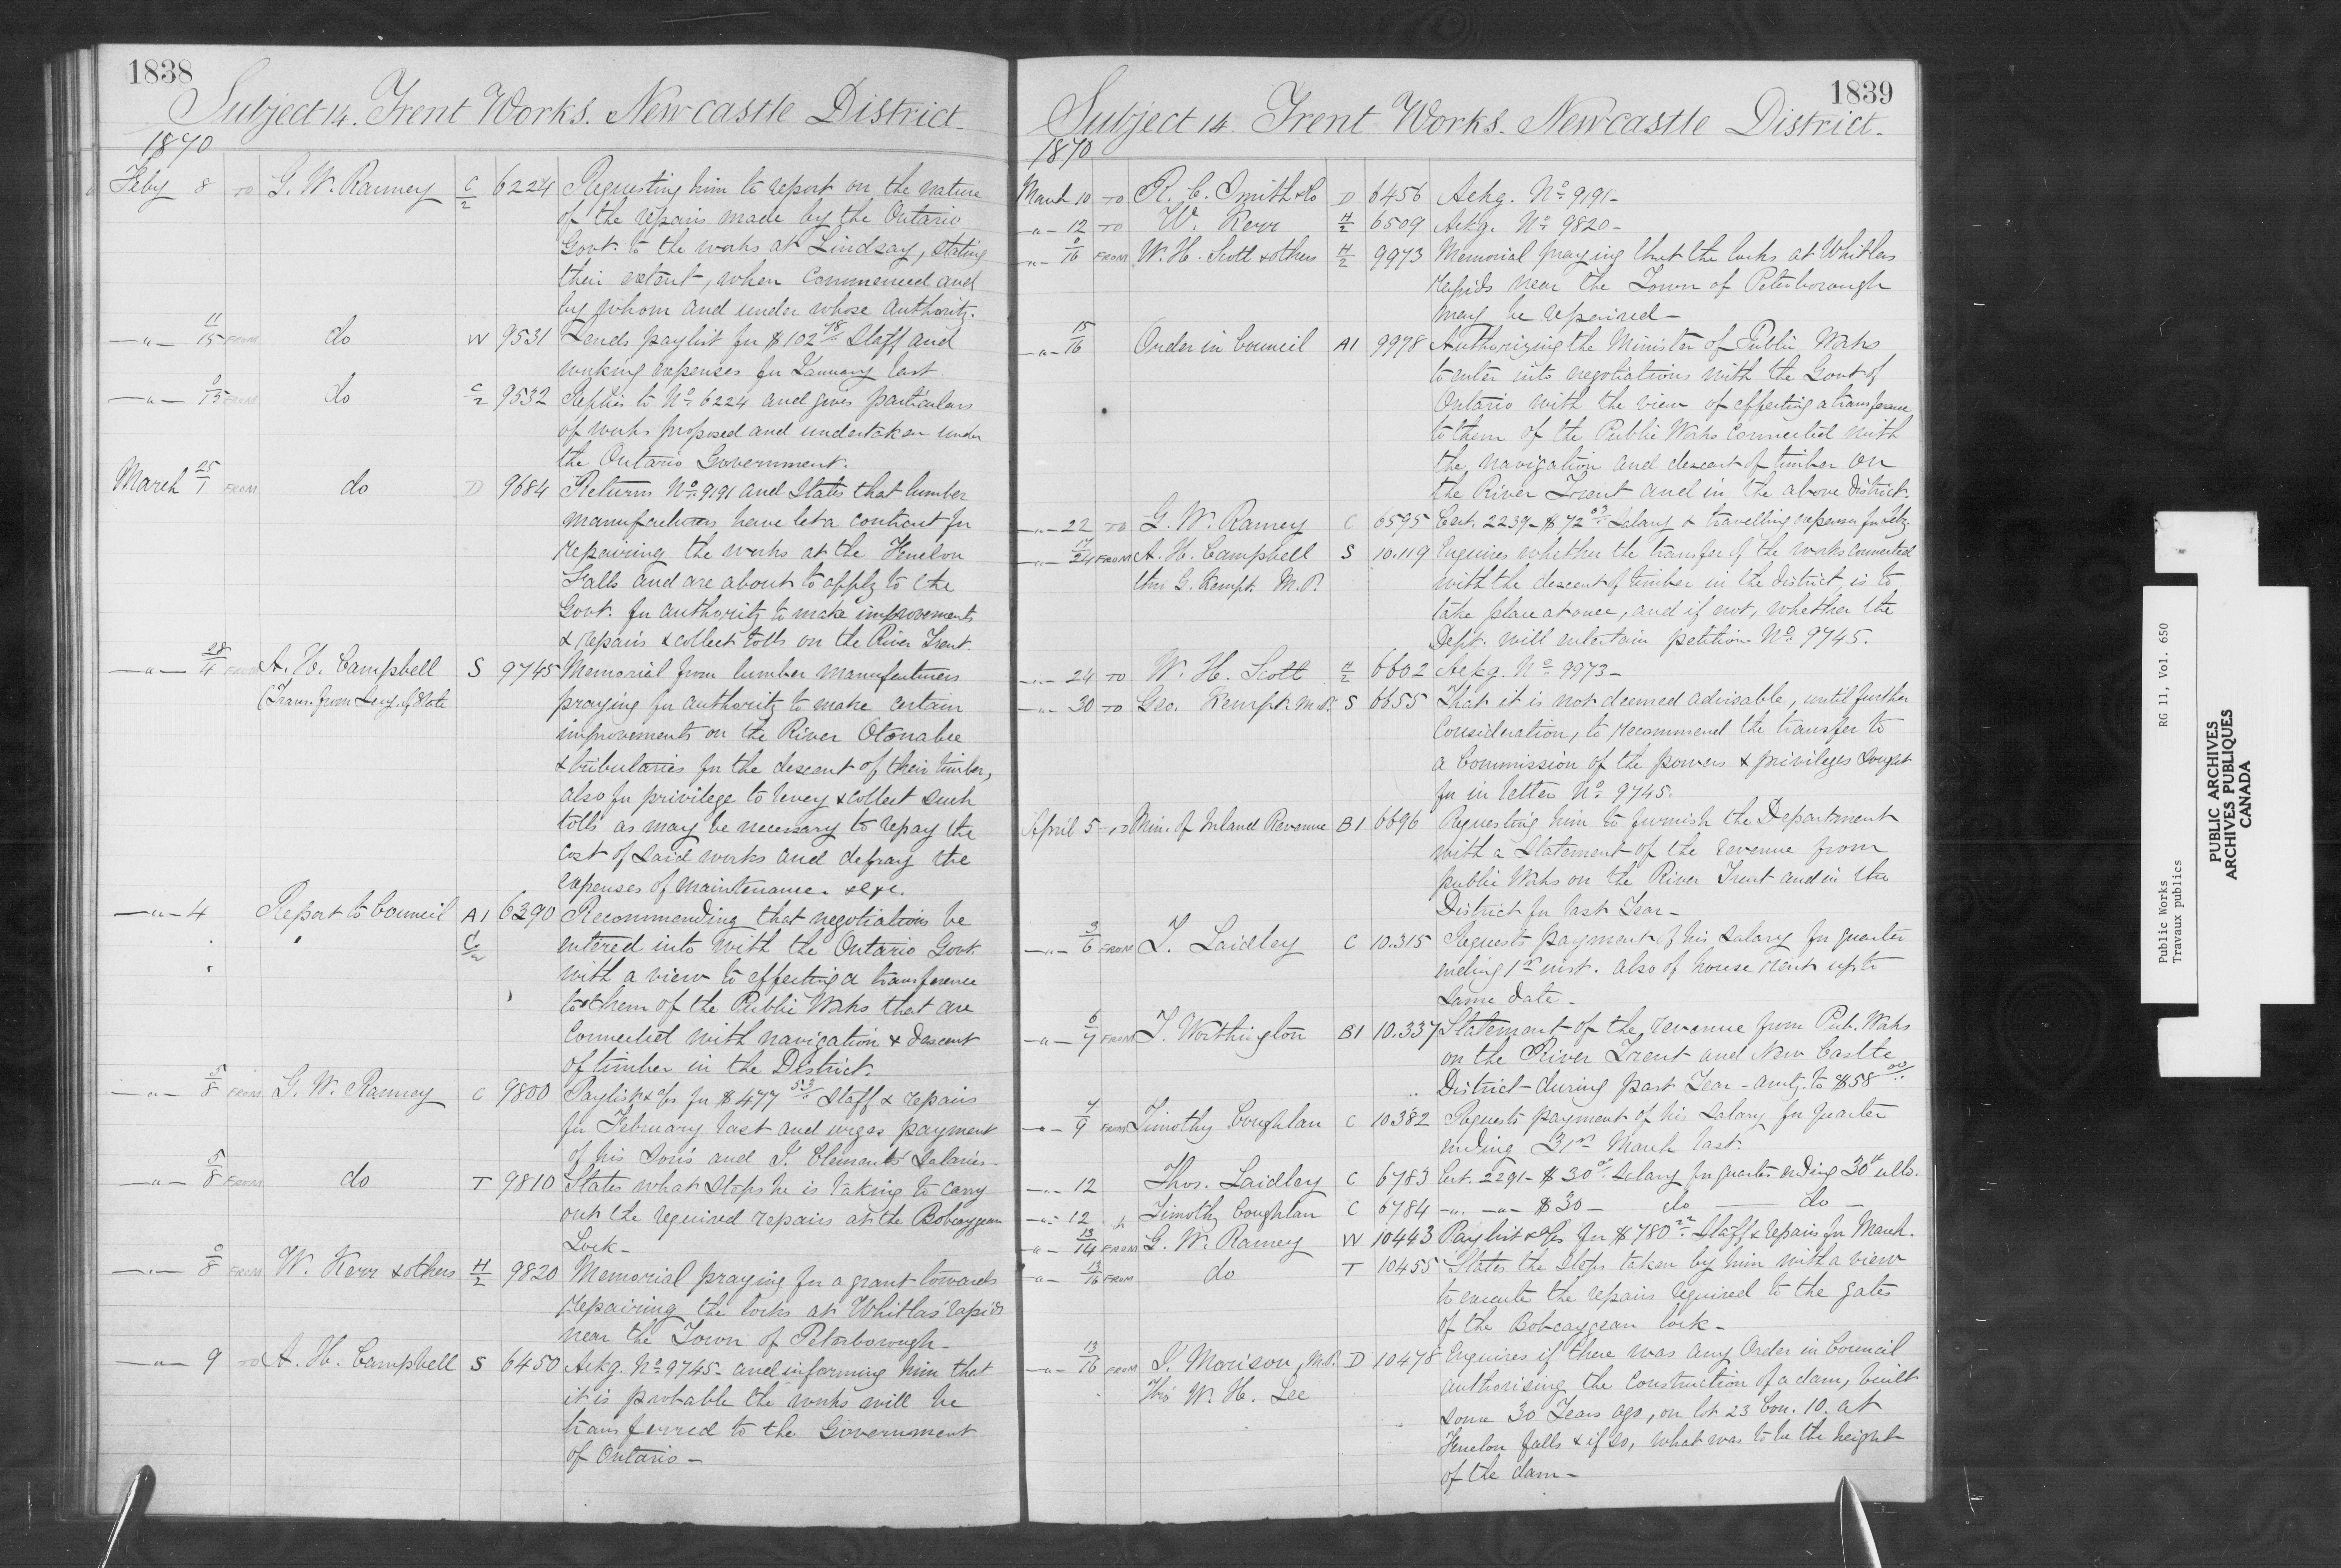 1838
Subject 14. Trent Works. Newcastle District.
1870
Feby 8 TO G. W. Ranney C/2 6224 Requesting him to report on the nature
of the repairs made by the Ontario
Govt. to the works at Lindsay, stating
their extent, when commenced and
by whom and under whose authority.
—"— 11/15 FROM do W 9531 Sends paylist for $102 78/.. Staff and
working expenses for January last.
—"— 9/15 FROM do C/2 9532 Replies to No. 6224 and gives particulars
of works proposed and undertaken under
the Ontario Government.
March 25/1 FROM do D 9684 Returns No. 9191 and States that lumber
manufacturers have let a contract for
repairing the works at the Fenelon
Falls and are about to apply to the
Govt. for authority to make improvements
& repairs & collect tolls on the River Trent.
—"— 28/4 FROM A. H. Campbell S 9745 Memorial from lumber manufacturers
(Trans. from Secy. of State praying for authority to make certain
improvements on the River Otonabee
& tributaries for the descent of their timber,
also for privilege to levey & collect such
tolls as may be necessary to repay the
cost of said works and defray the
expenses of maintenance. &c &c.
—"— 4 Report to Council A1 6390 Recommending that negotiations be
C/2 entered into with the Ontario Govt.
with a view to effecting a transference
to them of the Public Works that are
Connected with navigation & descent
of timber in the District.
—"— 5/8 FROM G. W. Ranney C 9800 Paylist & a/cs for $477 53/.. Staff & repairs
for February last and urges payment
of his Son's and J. Clements' Salaries.
—"— 5/8 FROM do T 9810 States what steps he is taking to carry
out the required repairs at the Bobcaygean
Lock—
—"— 0/8 FROM W. Kerr & others H/2 9820 Memorial praying for a grant towards
repairing the locks at Whitlas' rapids
near the Town of Peterborough—
—"— 9 TO A. H. Campbell S 6450 Ackg. No. 9745— and informing him that
it is probable the works will be
transferred to the Government
of Ontario—
1839
Subject 14. Trent Works. Newcastle District.
1870
March 10 TO R. C. Smith & Co D 6456 Ackg. No. 9191—
—"— 12 TO W. Kerr H/2 6509 Ackg. No. 9820—
—"— 0/16 FROM W. H. Scott & others H/2 9973 Memorial praying that the locks at Whitlas
rapids near the Town of Peterborough
may be repaired—
—"— 15/16 Order in Council A1 9978 Authorizing the Minister of Public Works
to enter into negotiations with the Govt of
Ontario with the view of effecting a transference
to them of the Public Works Connected with
the navigation and descent of timber on
the River Trent and in the above District.
—"— 22 TO G. W. Ranney C 6595 Cert. 2239— $72 03/.. Salary & travelling expenses for Feby.
—"— 17/24 FROM A. H. Campbell S 10.119 Enquires whether the transfer of the works connected
thro G. Kempt. M.P. with the descent of timber in the District is to
take place at once, and if not, whether the
Dept. will entertain petition No. 9745.
—"— 24 TO W. H. Scott H/2 6602 Ackg. No. 9973—
—"— 30 TO Geo. Kempt M.P. S 6655 That it is not deemed advisable, until further
Consideration, to recommend the transfer to
a Commission of the powers & privileges sought
for in letter No. 9745.
April 5 TO Min. of Inland Revenue B1 6696 Requesting him to furnish the Department
with a Statement of the revenue from
public Works on the River Trent and in the
District for last Year—
—"— 3/6 FROM T. Laidley C 10.315 Requests payment of his Salary for quarter
ending 1st inst. also of house rent up to
same date—
—"— 6/7 FROM T. Worthington B1 10.337 Statement of the revenue from Pub. Works
on the River Trent and New Castle
District—during past Year—amtg. to $58 00/..
—"— 7/9 FROM Timothy Coughlan C 10382 Requests payment of his Salary for quarter
ending 31st March last.
—"— 12 Thos. Laidley C 6783 Cert. 2291— $30 00. Salary for quarter ending 30th ulto.
—"— 12 Timothy Coughlan C 6784 —"— —"— $30— do — do—
—"— 13/14 FROM G. W. Ranney W 10443 Paylist & a/cs for $780 22/.. Staff & repairs for March.
—"— 13/16 FROM do T 10455 States the steps taken by him with a view
to execute the repairs required to the gates
of the Bobcaygean lock—
—"— 13/16 FROM J. Morison, M.P. D 10478 Enquires if there was any Order in Council
Thro' W. H. Lee authorising the construction of a dam, built
some 30 Years ago, on lot 23 Con. 10. at
Fenelon falls & if so, what was to be the height
of the dam—
Public Works RG 11, Vol. 650
Travaux publics
PUBLIC ARCHIVES
ARCHIVES PUBLIQUES
CANADA